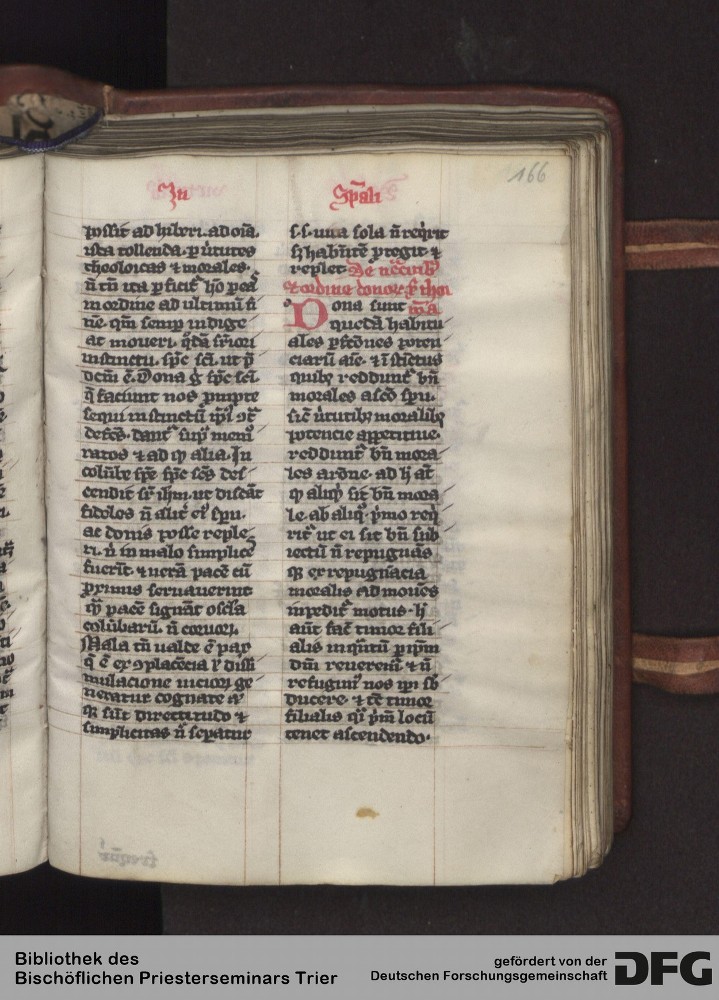 In
Spāli
166
possit ad hiberi. ad oīa
ista tollenda. ꝑ ůtutes
theoloicas ⁊ morales.
n̄ tn̄ ita ꝑficit̄ hō ꝑ eas
in ordine ad ultimū fi
nē. qin semꝑ indige
at moueri. q̇dā sr̄iori
instinctu. sp̄c sc̄i. ut p̄
dcm̄ ē. Dona g̊ sp̄c sc̄i.
q̄ faciunt nos ꝓmpte
sequi instinctū ip̄i
defcs̄. dant̄ sup̄ mem̄
ratos ⁊ ad ꝙ alia. In
colūbe sp̄e sp̄c sc̄s des
cendit sr̄ ihm̄. ut discāt
fideles n̄ alit̄ et̄ sp̄u.
ac donis posse reple
ri. n̄ in malo simplices
fuerīt. ⁊ uerā pacē cū
ꝓximis seruauerint
qͣ pacē signāt oscl̄a
colūbarū. n̄ coruor̄.
Mala tn̄ ualde ē pax
q̄ ē ex ꝯplacēcia ł dissi
mulacione uicior̄ ge
neratur cognate
sūt directitudo ⁊
simplicitas n̄ seꝑatur
s. s. una sola n̄ req̇rit
sꝫ habūtē ꝓtegit ⁊
replet. De ucc̄uib
⁊ ordine donor̄. s. thoī
Dona sunt
quedā habitu
ales ꝑfcōnes poten
ciarū aīe. ⁊ ī stīctus
quibꝫ reddunt̄ bn̄
morales a scō sp̄u.
sic̄ ůtutibꝫ moralibꝫ
potencie appetitiue.
reddunt̄ bn̄ mora
les a rōne. ad ħ at̄
ꝙ aliqͥ sit bn̄ mora
le. ab aliq̊. pͥmo req̇
rit̄ ut ei sit bn̄ sub
iectū n̄ repugnās
qꝫ ex repugnācia
moralis ad mouēs
inpedit̄ motus. ħ
aūt fac̄ timor fili
alis inqͣntū ꝑ ip̄m
dm̄ reuerem̄ ⁊ n̄
refugim̄ nos ip̄i sb̄
ducere. ⁊ iō timor
filialis qͥ pͥm locū
tenet ascendendo.
Bibliothek des
Bischöflichen Priesterseminars Trier
gefördert von der
Deutschen Forschungsgemeinschaft
DFG